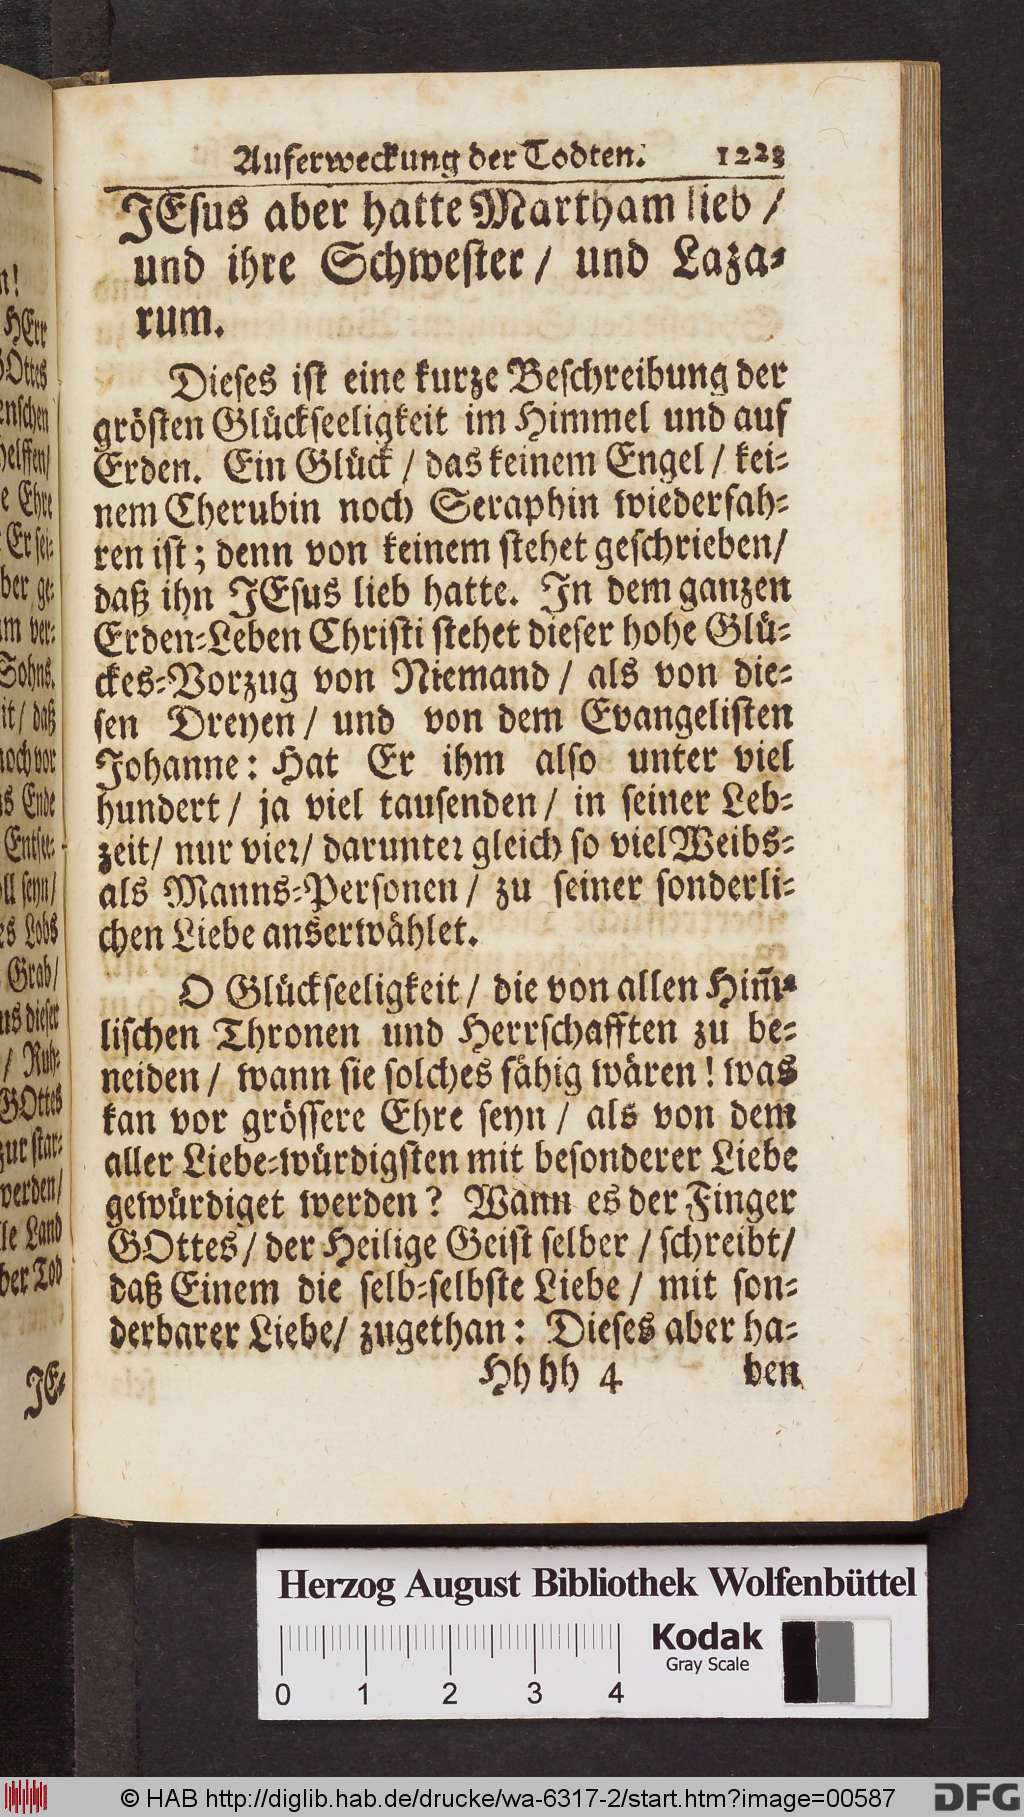 n!
HErr
GOttes
enschen
helffen/
e Ehre
Er sei-
ber ge-
m ver-
Sohns.
it / daß
noch vor
s Ende
Entsee-
oll seyn/
es Lobs
Grab/
us dieser
/ Ruh-
GOttes
zur star-
werden/
le Land
ber Tod
JE-
Auferweckung der Todten. 1223
JEsus aber hatte Martham lieb /
und ihre Schwester / und Laza-
rum.
Dieses ist eine kurze Beschreibung der
grösten Glückseeligkeit im Himmel und auf
Erden. Ein Glück / das keinem Engel / kei-
nem Cherubin noch Seraphin wiederfah-
ren ist; denn von keinem stehet geschrieben/
daß ihn JEsus lieb hatte. In dem ganzen
Erden-Leben Christi stehet dieser hohe Glü-
ckes-Vorzug von Niemand / als von die-
sen Dreyen / und von dem Evangelisten
Johanne: Hat Er ihm also unter viel
hundert / ja viel tausenden / in seiner Leb-
zeit/ nur vier/ darunter gleich so viel Weibs-
als Manns-Personen / zu seiner sonderli-
chen Liebe anserwählet.
O Glückseeligkeit / die von allen Him̄-
lischen Thronen und Herrschafften zu be-
neiden / wann sie solches fähig wären! was
kan vor grössere Ehre seyn / als von dem
aller Liebe-würdigsten mit besonderer Liebe
gewürdiget werden? Wann es der Finger
GOttes / der Heilige Geist selber / schreibt/
daß Einem die selb-selbste Liebe / mit son-
derbarer Liebe/ zugethan: Dieses aber ha-
Hh hh 4 ben
Herzog August Bibliothek Wolfenbüttel
Kodak
Gray Scale
0 1 2 3 4
© HAB http://diglib.hab.de/drucke/wa-6317-2/start.htm?image=00587
DFG